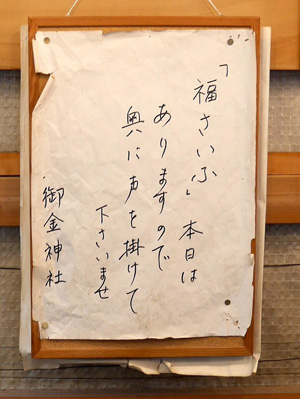 「福さいふ」本日は
ありますので
奥に声を掛けて
下さいませ
御金神社